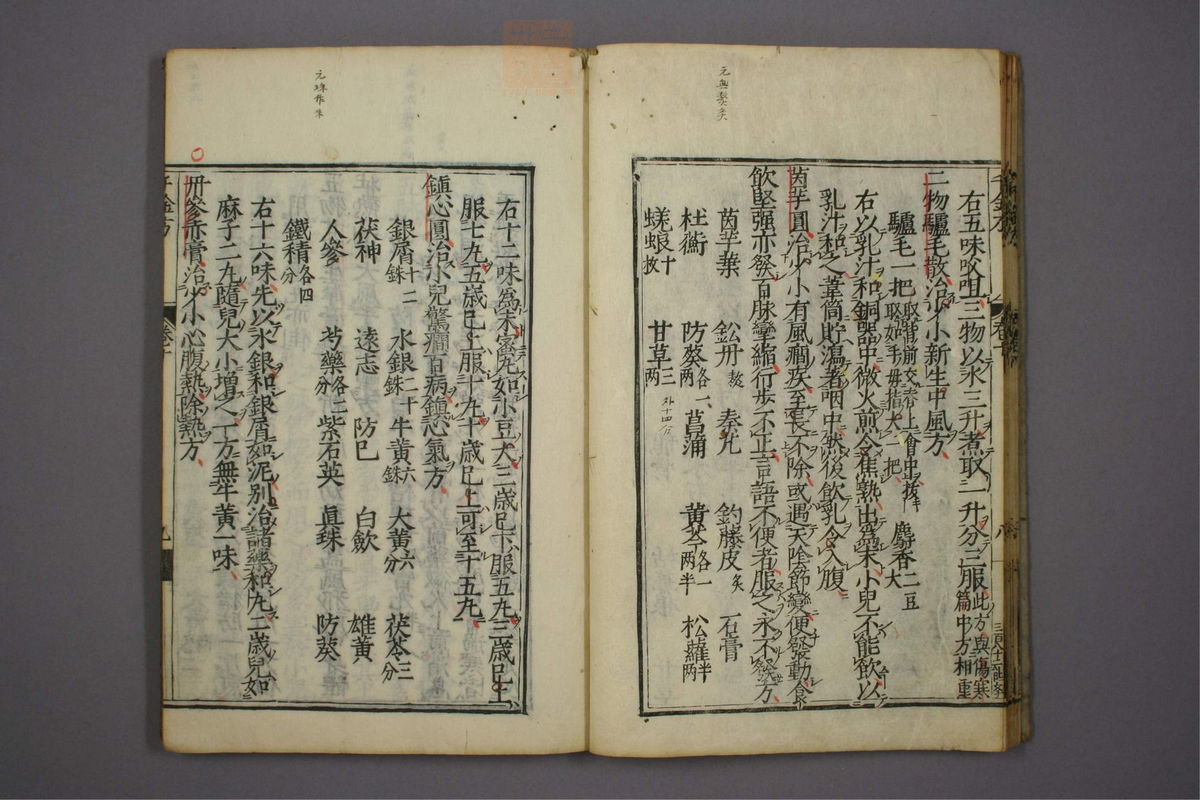 元無炙炙
右五味㕮咀三物以水三升煮取一升分三服此方與傷寒篇中方相重
二物驢毛散治少小新生中風方
驢毛一把取背前交脊上會中拔取如手拇指大一把 麝香二豆大
右以乳汁和銅器中微火煎令焦熟出為末小兒不能飲以
乳汁和之葦筒貯瀉著咽中然後飲乳令入腹
茵芋圓治少小有風癇疾至長不除或遇天陰節變便發動食
飲堅强亦發百脉攣縮行步不正言語不便者服之永不發方
茵芋葉 鈆丹 秦艽 釣藤皮炙 石膏
杜衡 防葵各一兩 菖蒲 黃芩各一兩半 松蘿半兩
蜣蜋十枚 甘草三兩
千金方 卷十 八
元珠作朱
右十二味為末蜜丸如小豆大三歲已下服五丸三歲已上
服七丸五歲已上服十丸十歲已上可至十五丸
鎮心圓治小兒驚癇百病鎮心氣方
銀屑十二銖 水銀二十銖 牛黃六銖 大黃六分 茯苓三分
茯神 遠志 防巳 白歛 雄黃
人參 芍藥各二分 紫石英 眞珠 防葵
鐵精各四分
右十六味先以水銀和銀屑如泥別治諸藥和丸三歲兒如
麻子二丸隨兒大小增之一方無牛黃一味
丹參赤膏治少小心腹熱除熱方
千金方 九